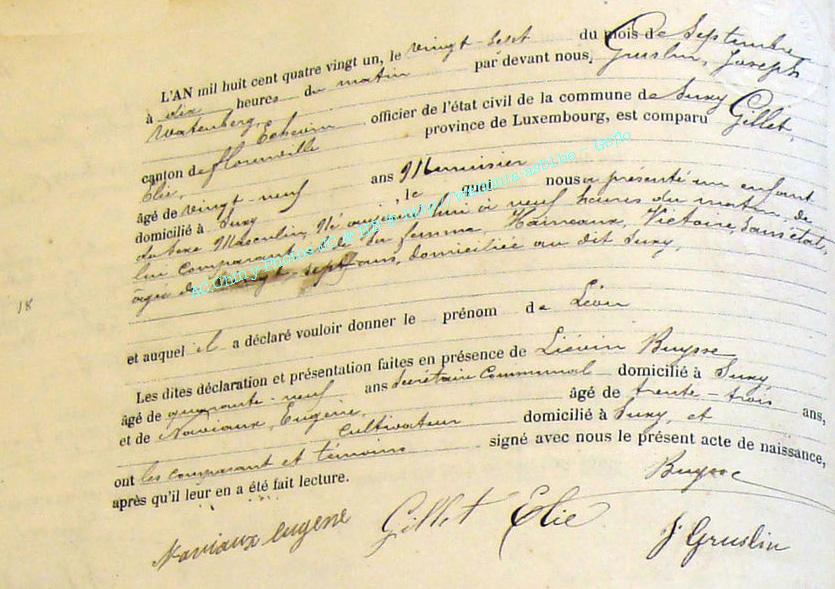 L'AN mil huit cent quatre vingt un, le vingt-sept du mois de Septembre
à dix heures du matin par devant nous, Gruslin, Joseph
Echevin officier de l'état civil de la commune de Suxy
canton de Florenville province de Luxembourg, est comparu Gillet,
Elie,
âgé de vingt-neuf ans Menuisier
domicilié à Suxy, le quel nous a présenté un enfant
du sexe Masculin, Né aujourd'hui à neuf heures du matin, de
lui comparant et de sa femme Hainaux, Victoire, sans état,
agée de vingt-sept ans, domiciliée au dit Suxy,
18
et auquel il a déclaré vouloir donner le prénom de Léon
Les dites déclaration et présentation faites en présence de Liévin Buysse
âgé de quarante-neuf ans Secrétaire Communal domicilié à Suxy
et de Naviaux, Eugène, âgé de trente-trois ans,
Cultivateur domicilié à Suxy, et
ont les comparant et témoins signé avec nous le présent acte de naissance,
après qu'il leur en a été fait lecture.
Buysse
Naviaux Eugene Gillet Elie J. Gruslin